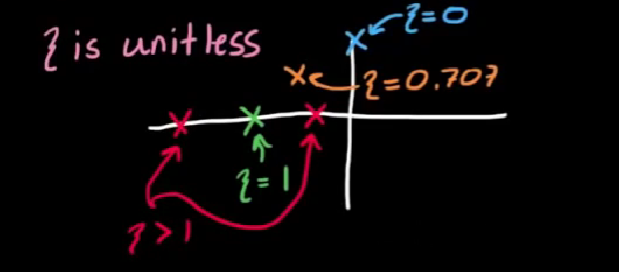 ζ is unitless
ζ=0
ζ=0.707
ζ=1
ζ>1